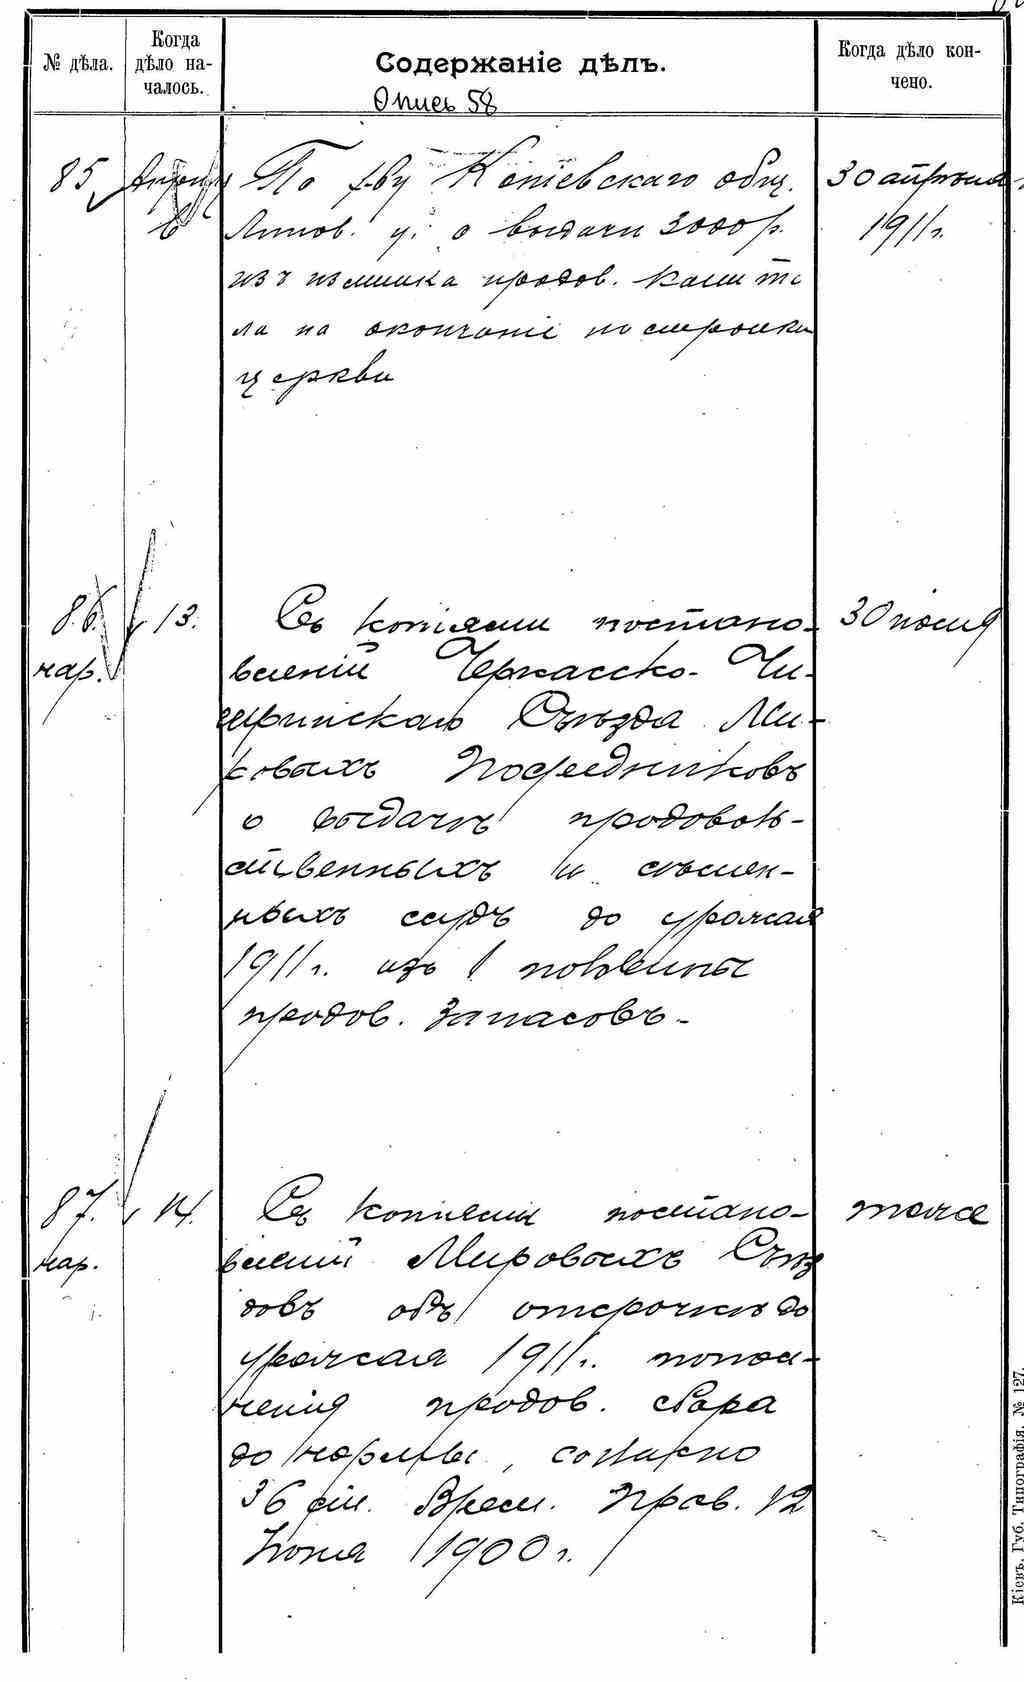 № дѣла.
Когда
дѣло на-
чалось.
Содержаніе дѣлъ.
Опись 58
Когда дѣло кон-
чено.
85
6
По х-ву Копіевскаго общ.
Липов. у. о выдачи 3000 р.
изъ излишка продов. капита
ла на окончаніе постройки
церкви
30 апрѣля
1911 г.
86.
нар.
13.
Съ копіями постано-
вленій Черкасско-Чи-
гиринскаго Съѣзда Ми-
ровыхъ Посредниковъ
о выдачѣ продоволь-
ственныхъ и сѣмен-
ныхъ ссудъ до урожая
1911 г. изъ ½ половины
продов. запасовъ-
30 іюня
87.
нар.
14.
Съ копіями постано-
вленій Мировыхъ Съѣз
довъ объ отсрочкѣ до
урожая 1911 г. попол-
ненія продов. сбора
до нормы, согласно
36 ст. Врем. Прав. 12
Іюня 1900 г.
тоже
Кіевъ, Губ. Типографія, № 127.